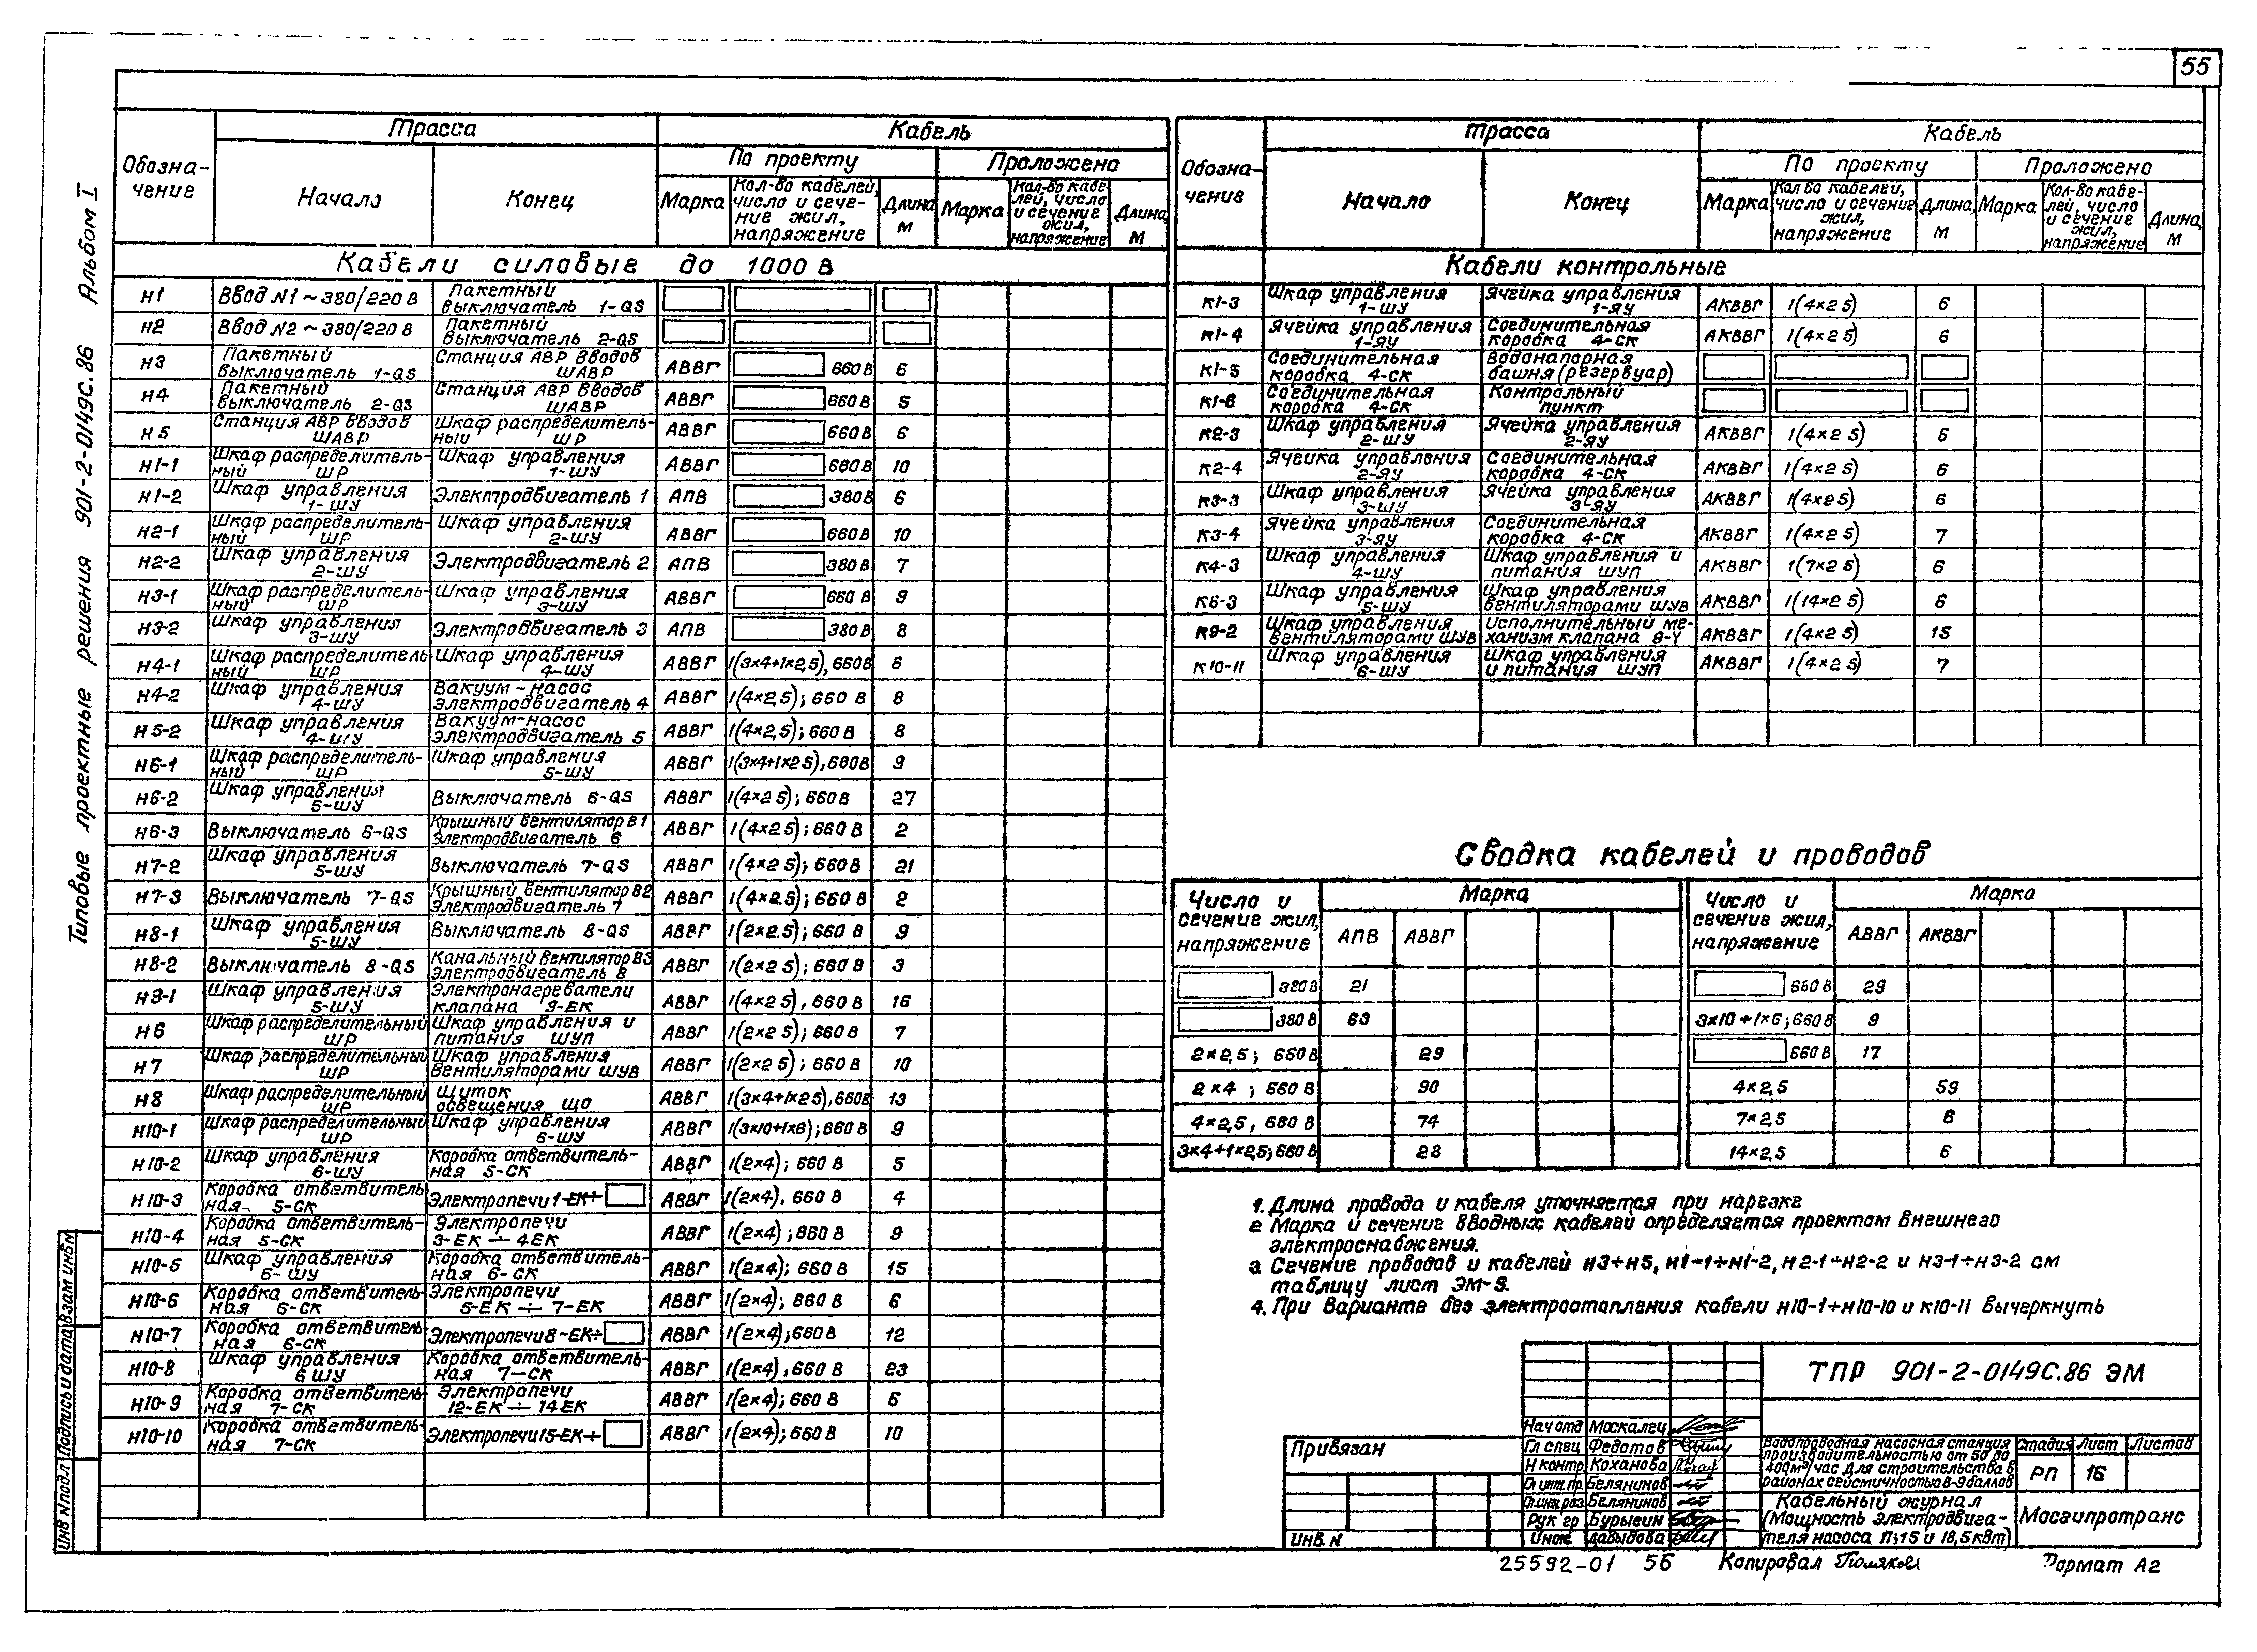 55
Типовые проектные решения 901-2-0149С.86 Альбом I
Обозначение | Трасса | Кабель
Начало | Конец | По проекту | Проложено
Марка | Кол-во кабелей, число и сечение жил, напряжение | Длина м | Марка | Кол-во кабелей, число и сечение жил, напряжение | Длина, м
Кабели силовые до 1000 В
Н1 | Ввод N1 ~ 380/220 В | Пакетный выключатель 1-QS
Н2 | Ввод N2 ~ 380/220 В | Пакетный выключатель 2-QS
Н3 | Пакетный выключатель 1-QS | Станция АВР вводов ШАВР | АВВГ | 660 В | 6
Н4 | Пакетный выключатель 2-QS | Станция АВР вводов ШАВР | АВВГ | 660 В | 5
Н5 | Станция АВР вводов ШАВР | Шкаф распределительный ШР | АВВГ | 660 В | 6
Н1-1 | Шкаф распределительный ШР | Шкаф управления 1-ШУ | АВВГ | 660 В | 10
Н1-2 | Шкаф управления 1-ШУ | Электродвигатель 1 | АПВ | 380 В | 6
Н2-1 | Шкаф распределительный ШР | Шкаф управления 2-ШУ | АВВГ | 660 В | 10
Н2-2 | Шкаф управления 2-ШУ | Электродвигатель 2 | АПВ | 380 В | 7
Н3-1 | Шкаф распределительный ШР | Шкаф управления 3-ШУ | АВВГ | 660 В | 9
Н3-2 | Шкаф управления 3-ШУ | Электродвигатель 3 | АПВ | 380 В | 8
Н4-1 | Шкаф распределительный ШР | Шкаф управления 4-ШУ | АВВГ | 1(3×4+1×2,5), 660В | 6
Н4-2 | Шкаф управления 4-ШУ | Вакуум-насос Электродвигатель 4 | АВВГ | 1(4×2,5); 660 В | 8
Н5-2 | Шкаф управления 4-ШУ | Вакуум-насос Электродвигатель 5 | АВВГ | 1(4×2,5); 660 В | 8
Н6-1 | Шкаф распределительный ШР | Шкаф управления 5-ШУ | АВВГ | 1(3×4+1×2 5), 660В | 9
Н6-2 | Шкаф управления 5-ШУ | Выключатель 6-QS | АВВГ | 1(4×2 5); 660 В | 27
Н6-3 | Выключатель 6-QS | Крышный вентилятор В1 Электродвигатель 6 | АВВГ | 1(4×2 5); 660 В | 2
Н7-2 | Шкаф управления 5-ШУ | Выключатель 7-QS | АВВГ | 1(4×2 5); 660 В | 21
Н7-3 | Выключатель 7-QS | Крышный вентилятор В2 Электродвигатель 7 | АВВГ | 1(4×2,5); 660 В | 2
Н8-1 | Шкаф управления 5-ШУ | Выключатель 8-QS | АВВГ | 1(2×2.5); 660 В | 9
Н8-2 | Выключатель 8-QS | Канальный вентилятор В3 Электродвигатель 8 | АВВГ | 1(2×2 5); 660 В | 3
Н9-1 | Шкаф управления 5-ШУ | Электронагреватели клапана 9-ЕК | АВВГ | 1(4×2 5), 660 В | 16
Н6 | Шкаф распределительный ШР | Шкаф управления и питания ШУП | АВВГ | 1(2×2 5); 660 В | 7
Н7 | Шкаф распределительный ШР | Шкаф управления вентиляторами ШУВ | АВВГ | 1(2×2 5); 660 В | 10
Н8 | Шкаф распределительный ШР | Щиток освещения ЩО | АВВГ | 1(3×4+1×2 5), 660В | 13
Н10-1 | Шкаф распределительный ШР | Шкаф управления 6-ШУ | АВВГ | 1(3×10+1×6); 660 В | 9
Н10-2 | Шкаф управления 6-ШУ | Коробка ответвительная 5-СК | АВВГ | 1(2×4); 660 В | 5
Н10-3 | Коробка ответвительная 5-СК | Электропечи 1-ЕК÷ | АВВГ | 1(2×4), 660 В | 4
Н10-4 | Коробка ответвительная 5-СК | Электропечи 3-ЕК ÷ 4ЕК | АВВГ | 1(2×4); 660 В | 9
Н10-5 | Шкаф управления 6-ШУ | Коробка ответвительная 6-СК | АВВГ | 1(2×4); 660 В | 15
Н10-6 | Коробка ответвительная 6-СК | Электропечи 5-ЕК ÷ 7-ЕК | АВВГ | 1(2×4); 660 В | 6
Н10-7 | Коробка ответвительная 6-СК | Электропечи 8-ЕК÷ | АВВГ | 1(2×4); 660 В | 12
Н10-8 | Шкаф управления 6 ШУ | Коробка ответвительная 7-СК | АВВГ | 1(2×4), 660 В | 23
Н10-9 | Коробка ответвительная 7-СК | Электропечи 12-ЕК ÷ 14ЕК | АВВГ | 1(2×4); 660 В | 6
Н10-10 | Коробка ответвительная 7-СК | Электропечи 15-ЕК÷ | АВВГ | 1(2×4); 660 В | 10
Обозначение | Трасса | Кабель
Начало | Конец | По проекту | Проложено
Марка | Кол во кабелей, число и сечение жил, напряжение | Длина, м | Марка | Кол-во кабелей, число и сечение жил, напряжение | Длина, м
Кабели контрольные
К1-3 | Шкаф управления 1-ШУ | Ячейка управления 1-ЯУ | АКВВГ | 1(4×2 5) | 6
К1-4 | Ячейка управления 1-ЯУ | Соединительная коробка 4-СК | АКВВГ | 1(4×2 5) | 6
К1-5 | Соединительная коробка 4-СК | Водонапорная башня (резервуар)
К1-6 | Соединительная коробка 4-СК | Контрольный пункт
К2-3 | Шкаф управления 2-ШУ | Ячейка управления 2-ЯУ | АКВВГ | 1(4×2 5) | 6
К2-4 | Ячейка управления 2-ЯУ | Соединительная коробка 4-СК | АКВВГ | 1(4×2 5) | 6
К3-3 | Шкаф управления 3-ШУ | Ячейка управления 3-ЯУ | АКВВГ | 1(4×2 5) | 6
К3-4 | Ячейка управления 3-ЯУ | Соединительная коробка 4-СК | АКВВГ | 1(4×2 5) | 7
К4-3 | Шкаф управления 4-ШУ | Шкаф управления и питания ШУП | АКВВГ | 1(7×2 5) | 6
К6-3 | Шкаф управления 5-ШУ | Шкаф управления вентиляторами ШУВ | АКВВГ | 1(14×2 5) | 6
К9-2 | Шкаф управления вентиляторами ШУВ | Исполнительный механизм клапана 9-Y | АКВВГ | 1(4×2 5) | 15
К10-11 | Шкаф управления 6-ШУ | Шкаф управления и питания ШУП | АКВВГ | 1(4×2 5) | 7
Сводка кабелей и проводов
Число и сечение жил, напряжение | Марка
АПВ | АВВГ
380 В | 21
380 В | 63
2×2,5; 660 В | 29
2×4 ; 660 В | 90
4×2,5, 660 В | 74
3×4+1×2,5; 660 В | 28
Число и сечение жил, напряжение | Марка
АВВГ | АКВВГ
660 В | 29
3×10+1×6; 660 В | 9
660 В | 17
4×2,5 | 59
7×2,5 | 6
14×2,5 | 6
1. Длина провода и кабеля уточняется при нарезке
2 Марка и сечение вводных кабелей определяется проектом внешнего
электроснабжения.
3 Сечение проводов и кабелей Н3÷Н5, Н1-1÷Н1-2, Н2-1÷Н2-2 и Н3-1÷Н3-2 см
таблицу лист ЭМ-5.
4. При варианте без электроотопления кабели Н10-1÷Н10-10 и К10-11 вычеркнуть
ТПР 901-2-0149С.86 ЭМ
Нач отд Москалец
Гл спец Федотов
Н контр Коханова
Гл инж.пр. Белянинов
Гл.инж.раз Белянинов
Рук гр Бурыгин
Инж. Давыдова
Водопроводная насосная станция
производительностью от 50 до
400м³/час для строительства в
районах сейсмичностью 8-9 баллов
Стадия Лист Листов
РП 16
Кабельный журнал
(Мощность электродвига-
теля насоса 11; 15 и 18,5 кВт)
Мосгипротранс
Привязан
Инв. N
Инв N подл Подпись и дата Взам инв N
25592-01 56 Копировал Полякова Формат А2